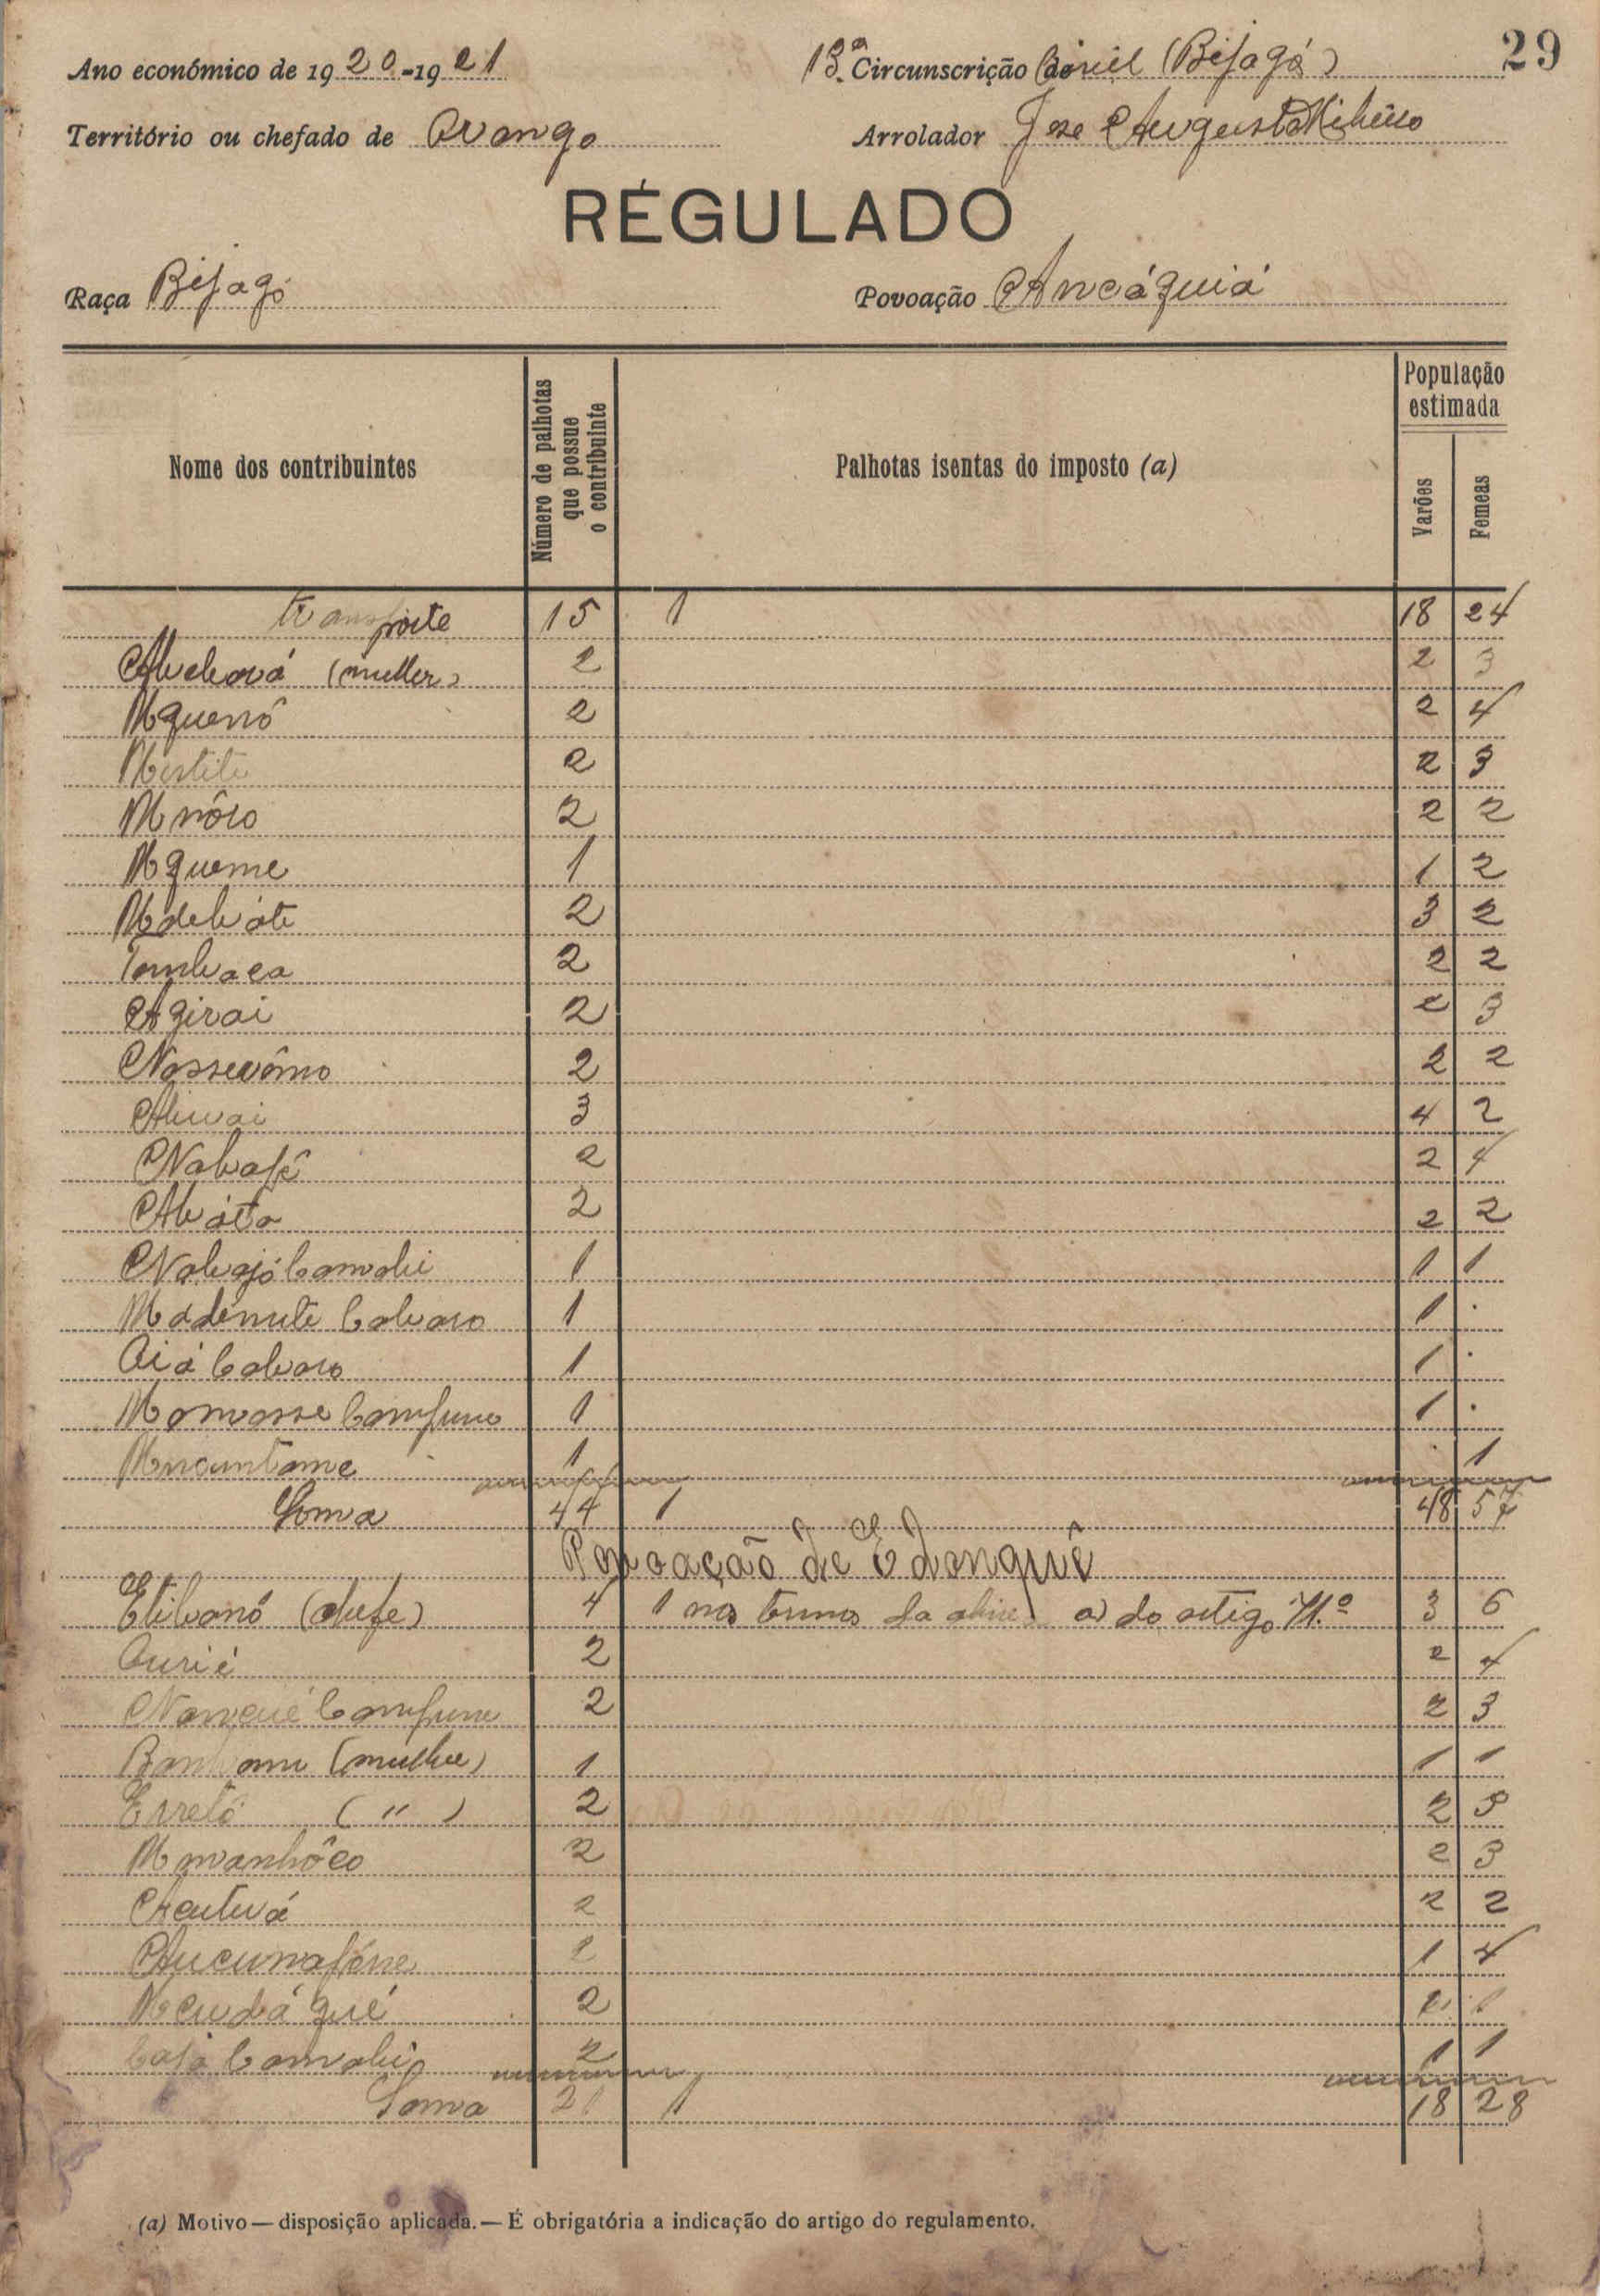 29
Ano económico de 1920-1921 13.ª Circunscrição Civil (Bijagó)
Território ou chefado de Orango Arrolador José Augusto
RÉGULADO
Raça Bijagó Povoação Ancáguiá
Nome dos contribuintes Número de palhotas que possue o contribuinte Palhotas isentas do imposto (a) População estimada Varões Femeas
transporte 15 1 18 24
(mulher) 2 2 3
Mquenó 2 2 4
2 2 3
Mnôco 2 2 2
Mqueme 1 1 2
2 3 2
Tambaca 2 2 2
Agirai 2 2 3
2 2 2
3 4 2
Nabajê 2 2 4
Abáta 2 2 2
Nabajó Canhabi 1 1 1
Madénute Cabaro 1 1 .
Oiá Cabaro 1 1 .
Momosse Campuni 1 1 .
Mncuntame 1 1
Soma 44 1 48 57
Povoação de Edanquê
Etibanó (chefe) 4 1 nos termos da alinea a) do artigo 11.º 3 6
Ourié 2 2 4
Campuni 2 2 3
(mulher) 1 1 1
Erretó ( " ) 2 2 3
Mmanhôco 2 2 3
2 2 2
1 4
2
2 1 1
Soma 21 1 18 28
(a) Motivo — disposição aplicada. — É obrigatória a indicação do artigo do regulamento.